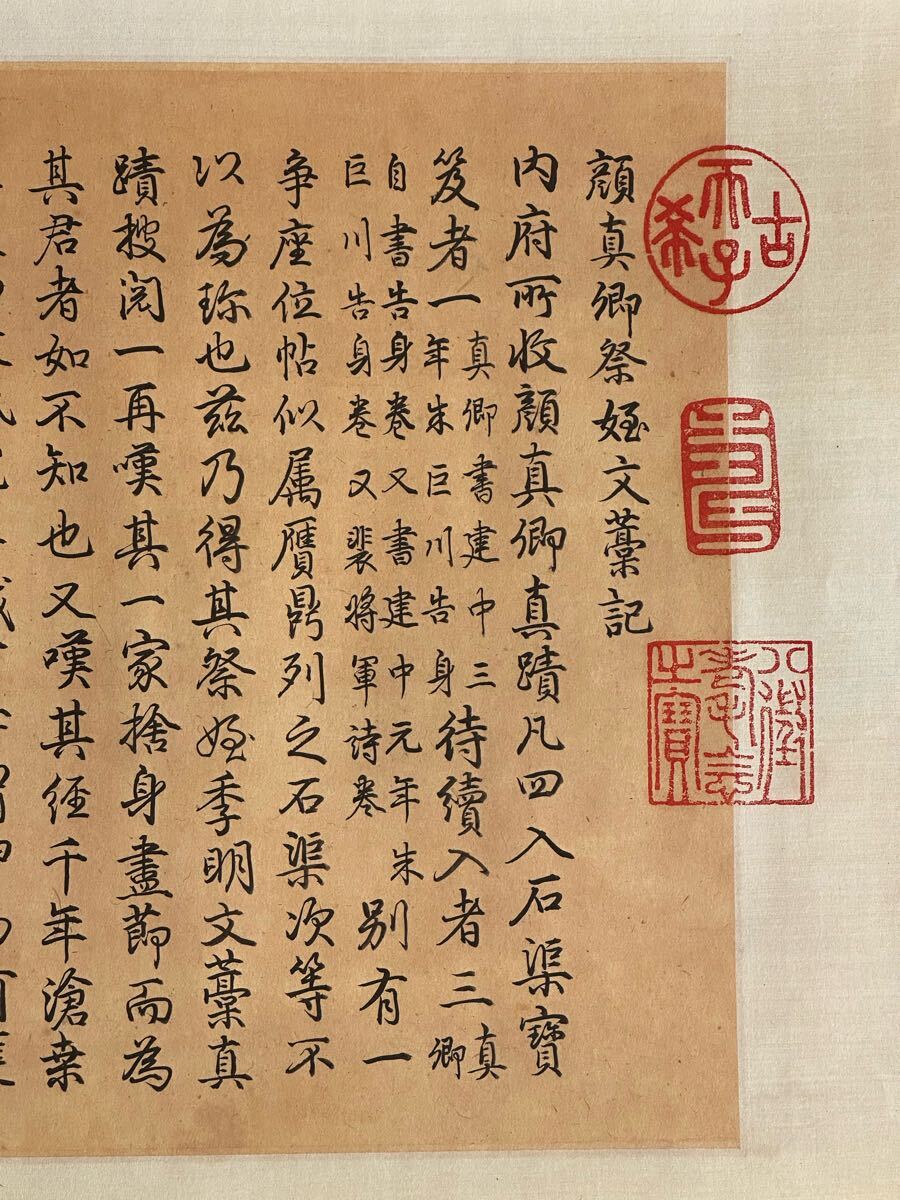 古希天子
壽
八徵耄念之寶
顔真卿祭姪文藁記
内府所收顔真卿真蹟凡四入石渠寶
笈者一真卿書建中三年朱巨川告身待續入者三真卿
自書告身卷又書建中元年朱巨川告身卷又裴將軍詩卷别有一
争座位帖似属贋鼎列之石渠次等不
以為珎也兹乃得其祭姪季明文藁真
蹟搜閲一再嘆其一家捨身盡節而為
其君者如不知也又嘆其經千年滄桒